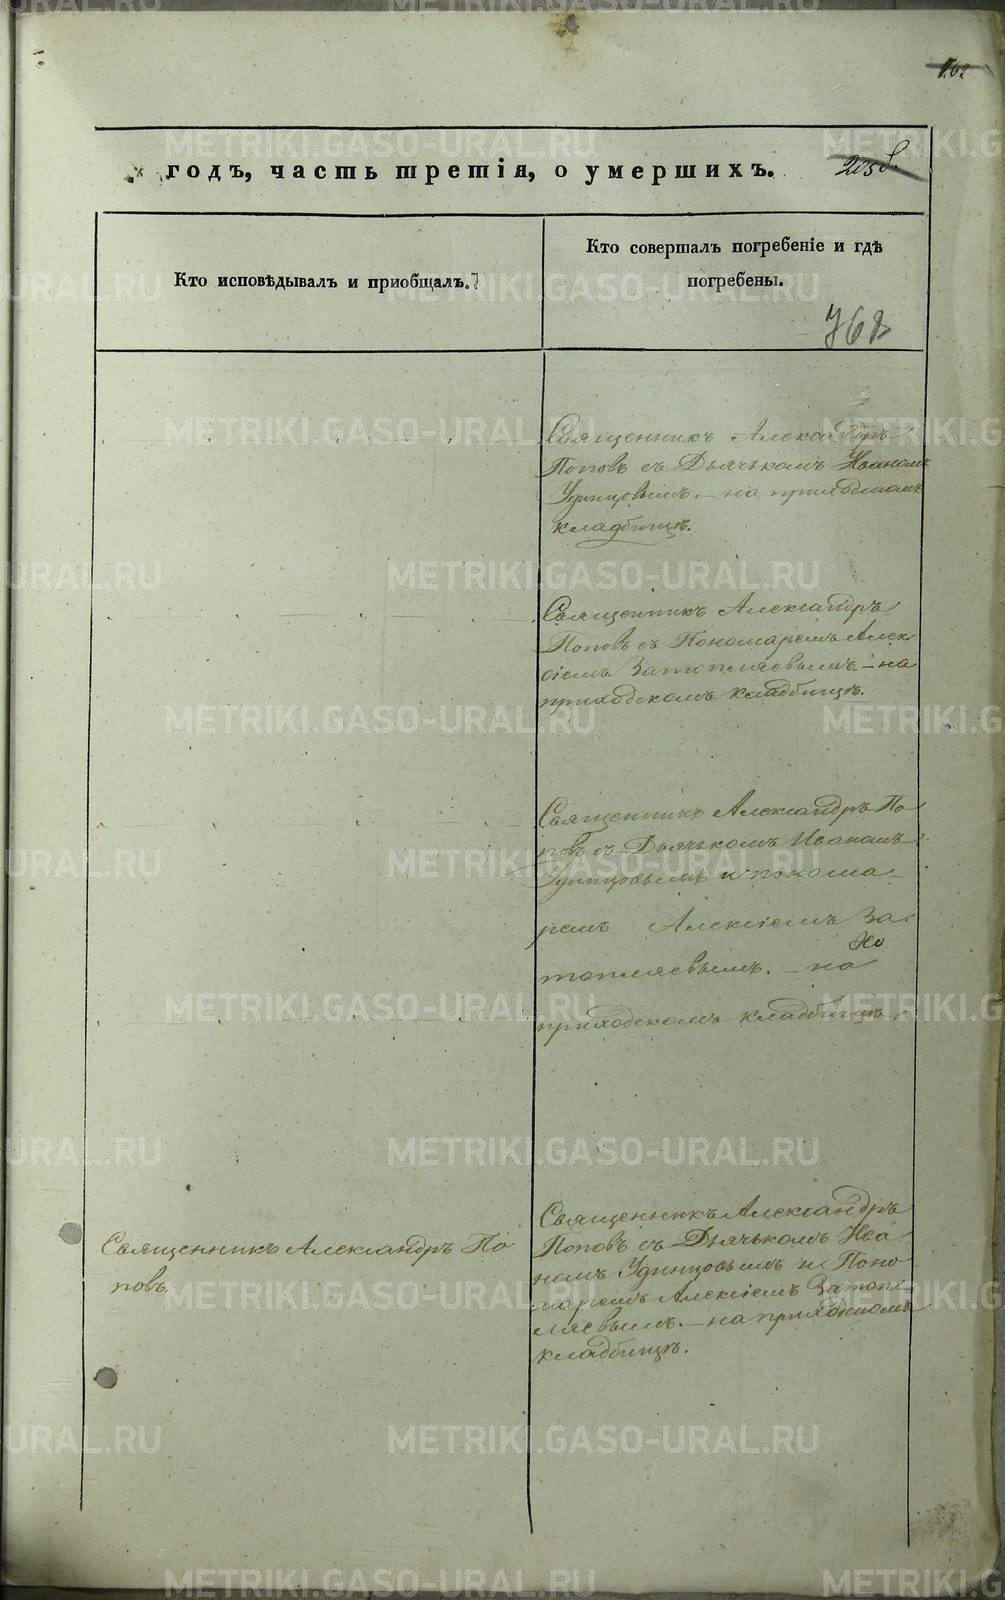 годъ, часть третія, о умершихъ.
Кто исповѣдывалъ и пріобщалъ.
Кто совершалъ погребеніе и гдѣ
погребены.
768
Священникъ Александръ
Поповъ съ Дьячькомъ Иваномъ
Удинцовымъ. – на приходскомъ
кладбищѣ.
Священникъ Александръ
Поповъ съ Пономаремъ Алек
сіемъ Затопляевымъ – на
приходскомъ кладбищѣ.
Священникъ Александръ По
повъ съ Дьячькомъ Иваномъ
Удинцовымъ и понома-
ремъ Алексіемъ За-
топляевымъ. – на
приходскомъ кладбищѣ.
Священникъ Александръ По
повъ
Священникъ Александръ
Поповъ съ Дьячькомъ Ива
номъ Удинцовымъ и Поно
маремъ Алексіемъ Затоп-
ляевымъ. – на приходскомъ
кладбищѣ.
METRIKI.GASO-URAL.RU